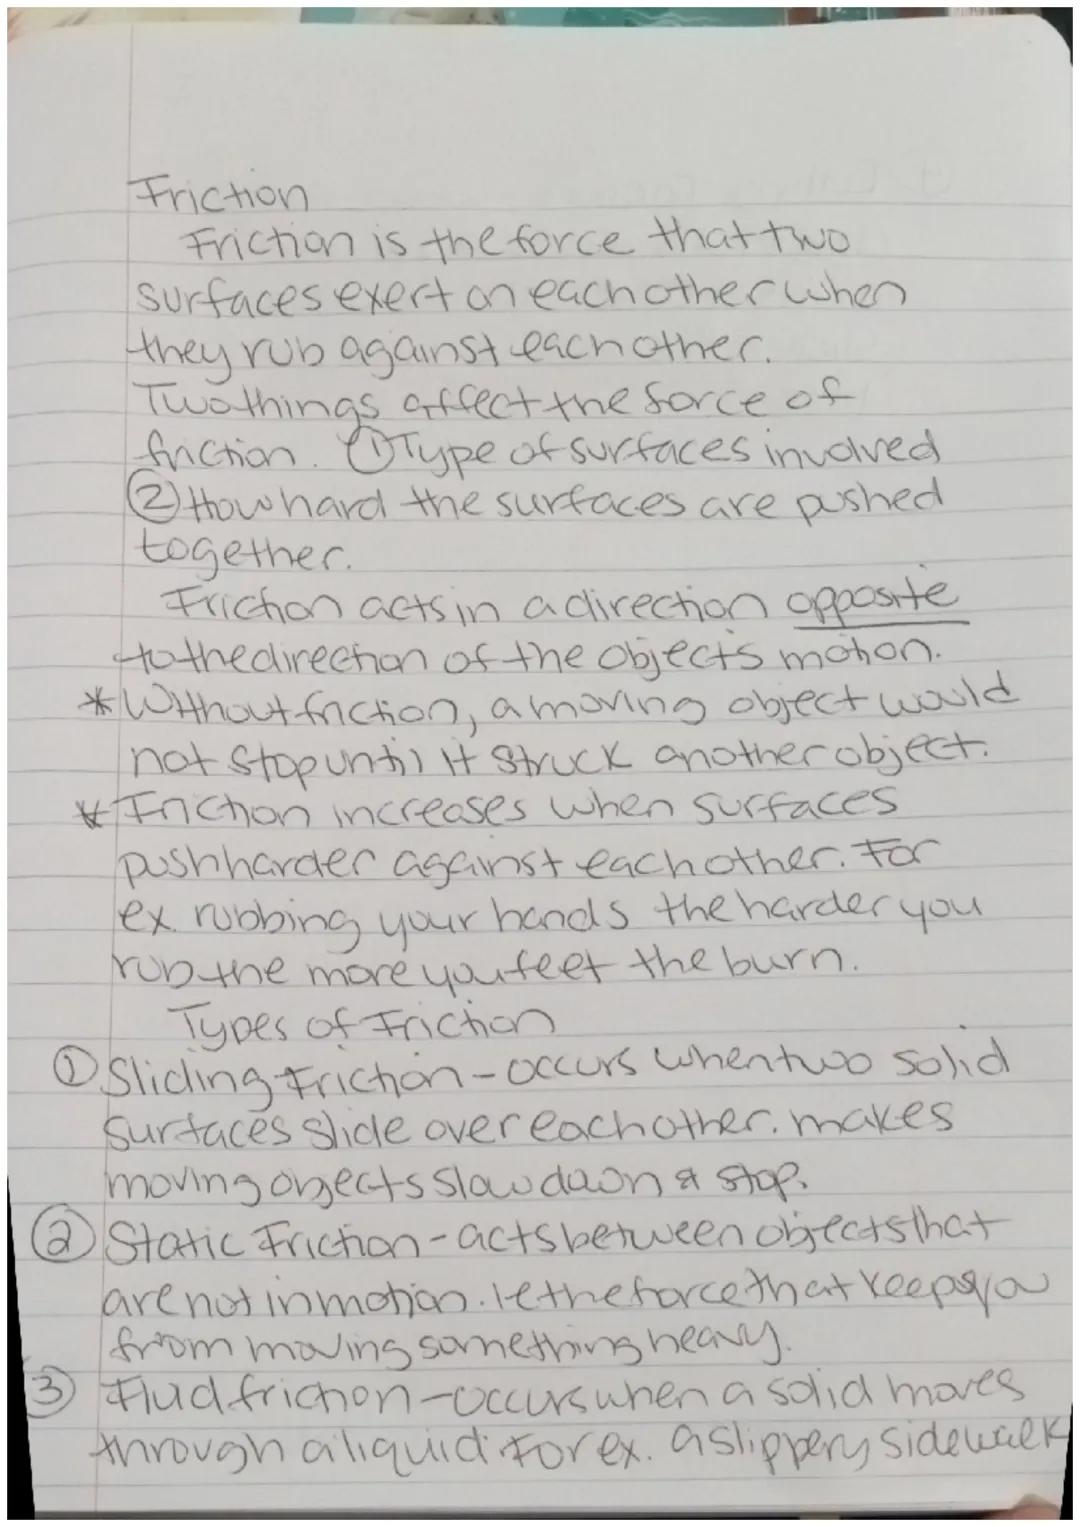 Friction
Friction is the force that two
surfaces exert on each other when
they rub against each other.
Two things affect the force of
friction. ① Type of surfaces involved
② How hard the surfaces are pushed
together.
Friction acts in a direction opposite
to the direction of the object's motion.
* Without friction, a moving object would
not stop until it struck another object.
* Friction increases when surfaces
push harder against each other. For
ex. rubbing your hands the harder you
rub the more you feet the burn.
Types of Friction
① Sliding Friction - occurs when two solid
surfaces slide over each other. makes
moving objects slow down & stop.
② Static Friction - acts between objects that
are not in motion. Ie the force that keeps you
from moving something heavy.
③ Flud friction - occurs when a solid moves
through a liquid. For ex. a slippery sidewalk